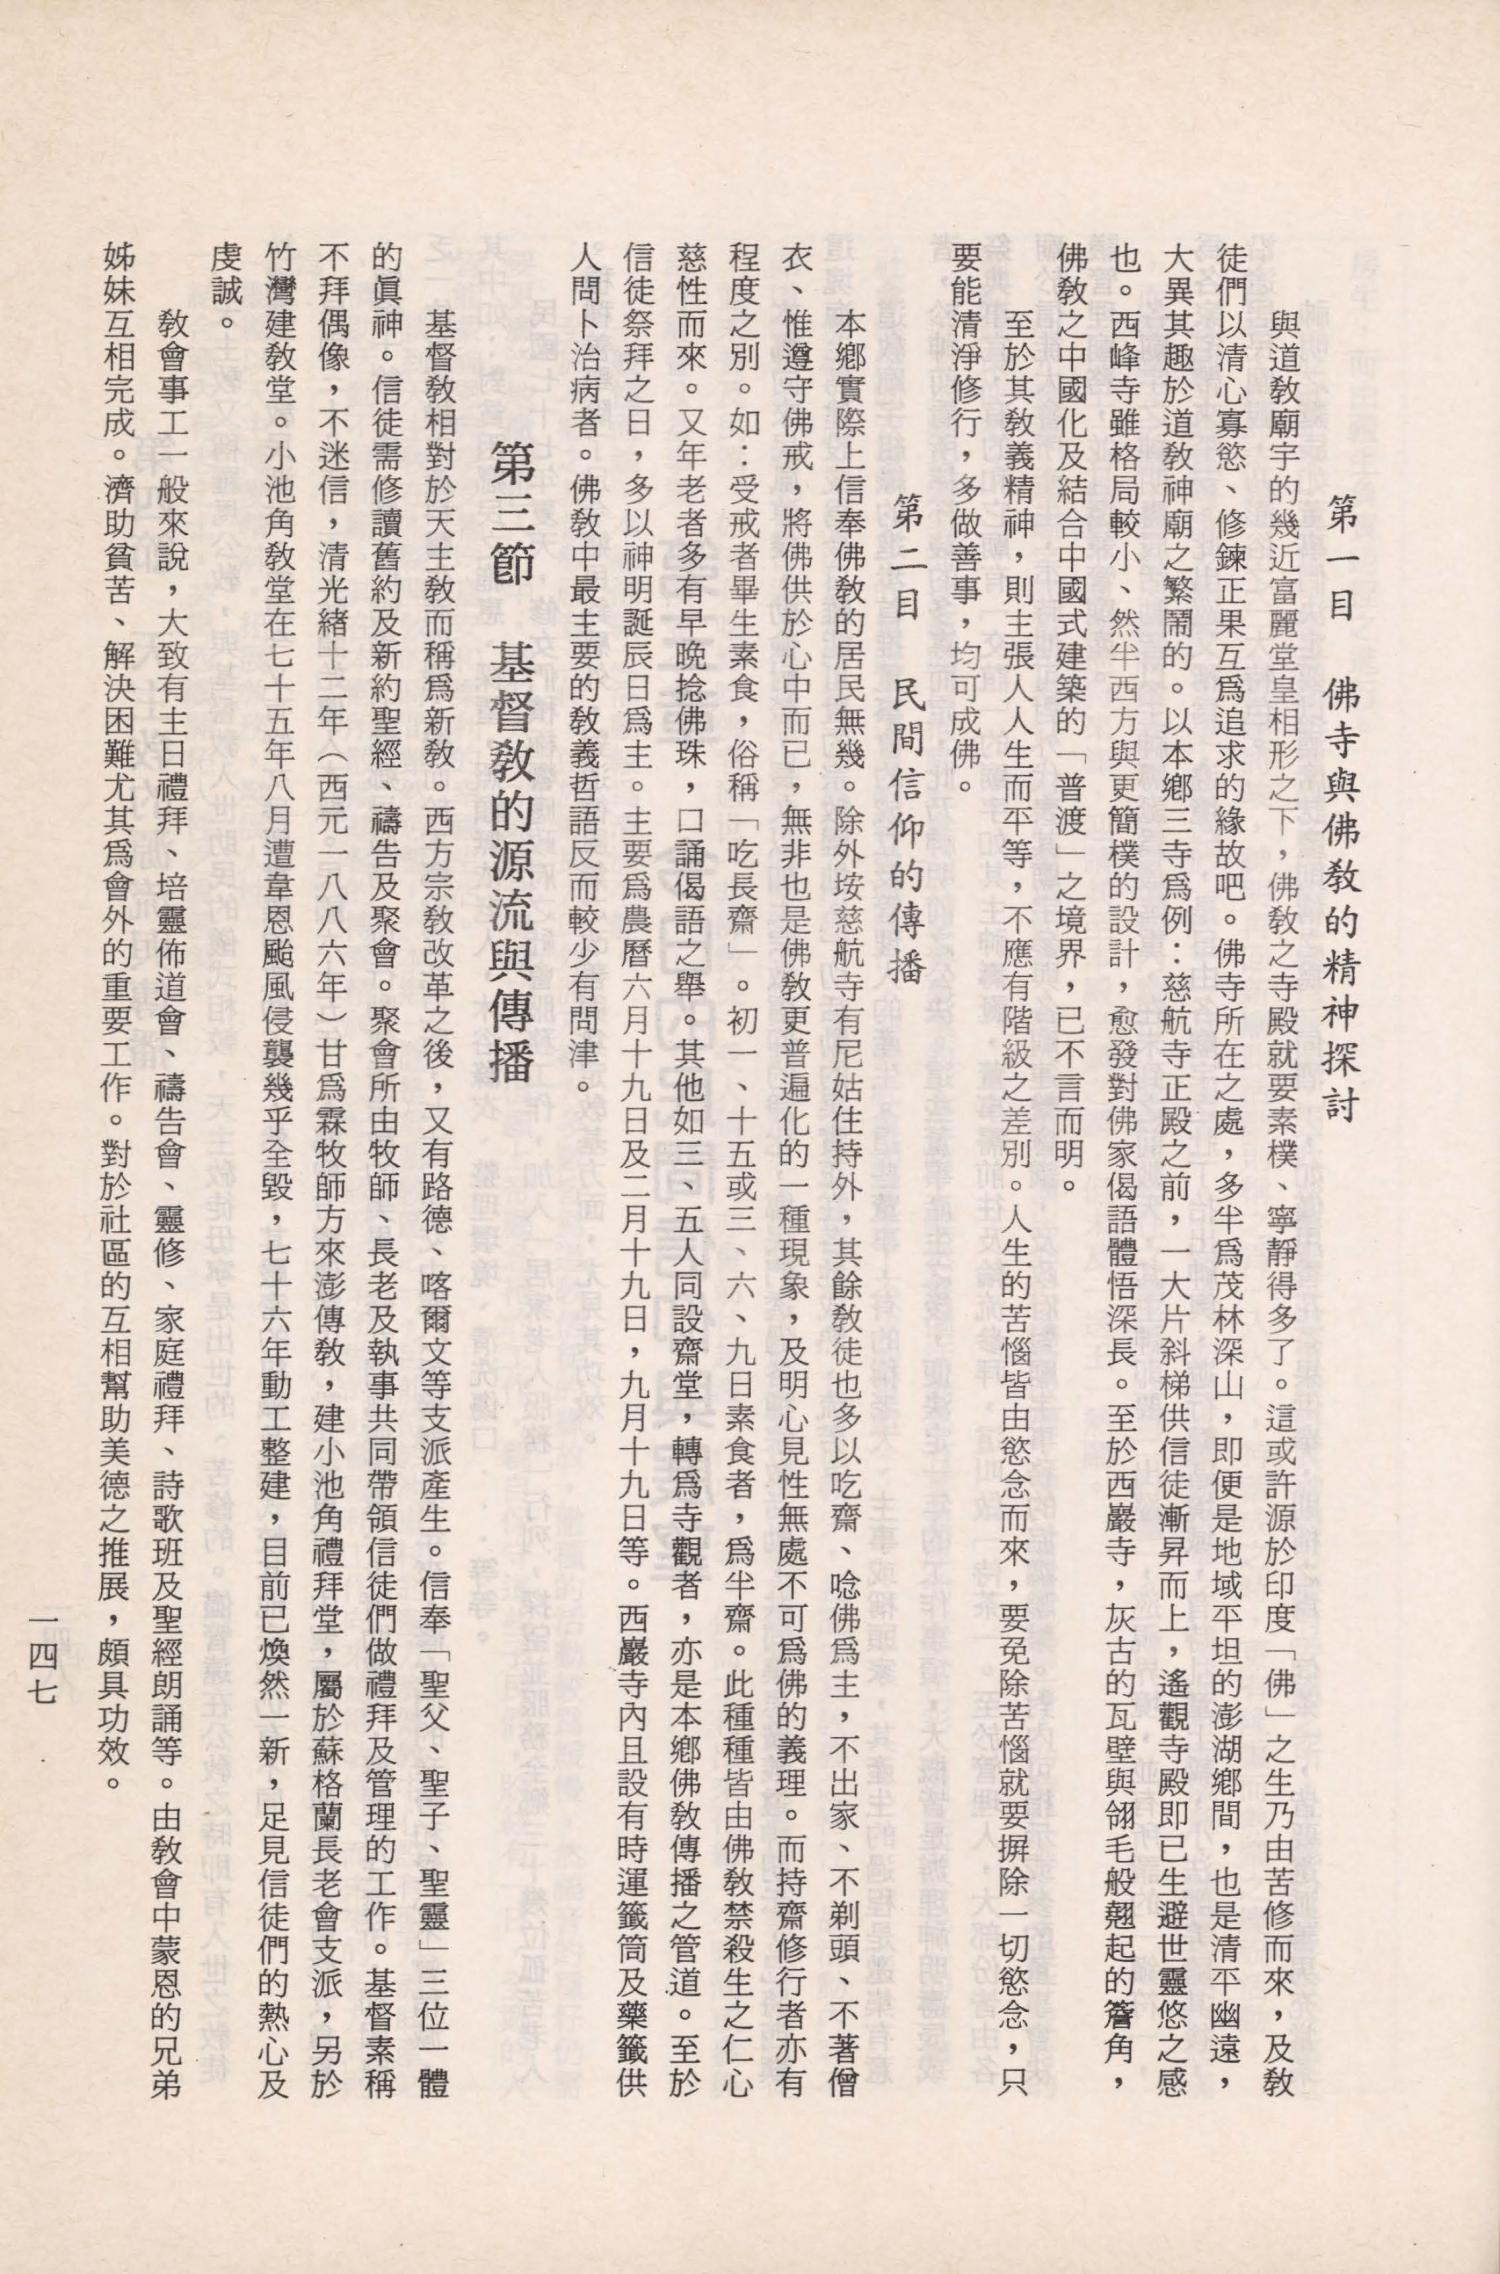 第一目　佛寺與佛教的精神探討
與道教廟宇的幾近富麗堂皇相形之下，佛教之寺殿就要素樸、寧靜得多了。這或許源於印度「佛」之生乃由苦修而來，及教
徒們以清心寡慾、修鍊正果互為追求的緣故吧。佛寺所在之處，多半為茂林深山，即便是地域平坦的澎湖鄉間，也是清平幽遠，
大異其趣於道教神廟之繁鬧的。以本鄉三寺為例：慈航寺正殿之前，一大片斜梯供信徒漸昇而上，遙觀寺殿即已生避世靈悠之感
也。西峰寺雖格局較小、然半西方與更簡樸的設計，愈發對佛家偈語體悟深長。至於西巖寺，灰古的瓦壁與翎毛般翹起的簷角，
佛教之中國化及結合中國式建築的「普渡」之境界，已不言而明。
至於其教義精神，則主張人人生而平等，不應有階級之差別。人生的苦惱皆由慾念而來，要免除苦惱就要摒除一切慾念，只
要能清淨修行，多做善事，均可成佛。
第二目　民間信仰的傳播
本鄉實際上信奉佛教的居民無幾。除外垵慈航寺有尼姑住持外，其餘教徒也多以吃齋、唸佛為主，不出家、不剃頭、不著僧
衣、惟遵守佛戒，將佛供於心中而已，無非也是佛教更普遍化的一種現象，及明心見性無處不可為佛的義理。而持齋修行者亦有
程度之別。如：受戒者畢生素食，俗稱「吃長齋」。初一、十五或三、六、九日素食者，為半齋。此種種皆由佛教禁殺生之仁心
慈性而來。又年老者多有早晚捻佛珠，口誦偈語之舉。其他如三、五人同設齋堂，轉為寺觀者，亦是本鄉佛教傳播之管道。至於
信徒祭拜之日，多以神明誕辰日為主。主要為農曆六月十九日及二月十九日，九月十九日等。西巖寺內且設有時運籤筒及藥籤供
人問卜治病者。佛教中最主要的教義哲語反而較少有問津。
第三節　基督教的源流與傳播
基督教相對於天主教而稱為新教。西方宗教改革之後，又有路德、喀爾文等支派產生。信奉「聖父、聖子、聖靈」三位一體
的眞神。信徒需修讀舊約及新約聖經、禱告及聚會。聚會所由牧師、長老及執事共同帶領信徒們做禮拜及管理的工作。基督素稱
不拜偶像，不迷信，清光緒十二年（西元一八八六年）甘為霖牧師方來澎傳教，建小池角禮拜堂，屬於蘇格蘭長老會支派，另於
竹灣建教堂。小池角教堂在七十五年八月遭韋恩颱風侵襲幾乎全毀，七十六年動工整建，目前已煥然一新，足見信徒們的熱心及
虔誠。
教會事工一般來說，大致有主日禮拜、培靈佈道會、禱告會、靈修、家庭禮拜、詩歌班及聖經朗誦等。由教會中蒙恩的兄弟
姊妹互相完成。濟助貧苦、解決困難尤其為會外的重要工作。對於社區的互相幫助美德之推展，頗具功效。
一四七